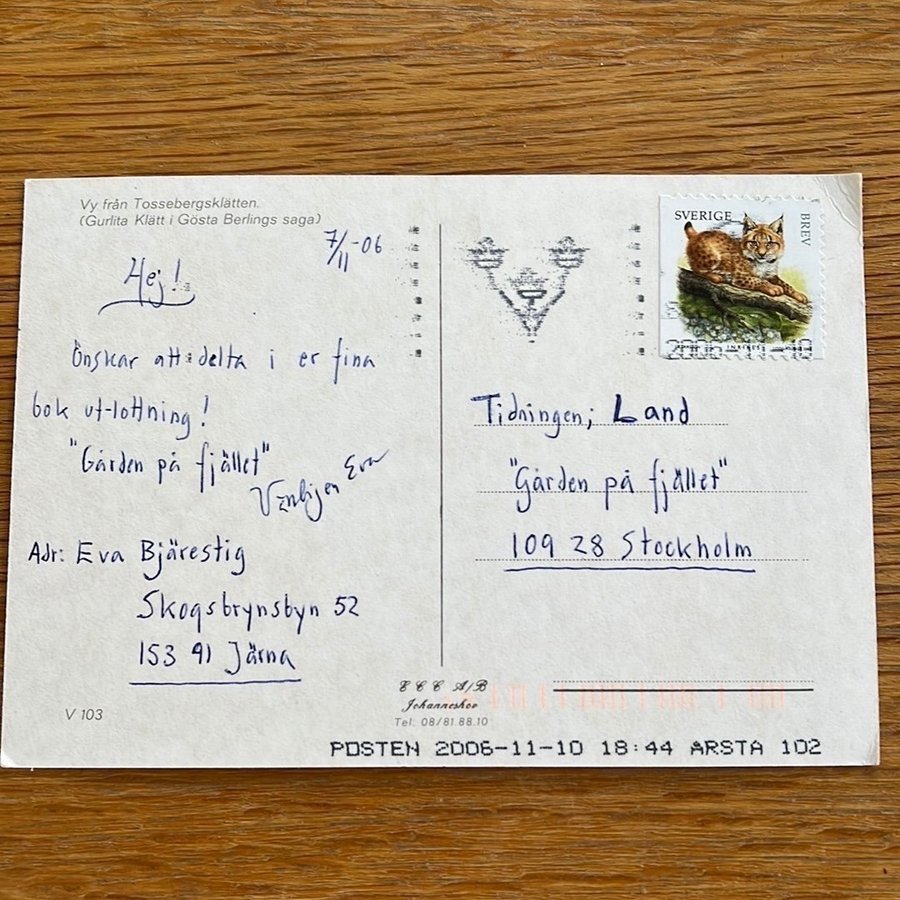 Vy från Tossebergsklätten.
(Gurlita Klätt i Gösta Berlings saga)
7/11-06
Hej!
Önskar att delta i er fina
bok ut-lottning!
"Gården på fjället"
Vänligen Eva
Adr: Eva Bjärestig
Skogsbrynsbyn 52
153 91 Järna
V 103
E C C A/B
Johanneshov
Tel. 08/81.88.10
SVERIGE
BREV
2006-11-10
Tidningen; Land
"Gården på fjället"
109 28 Stockholm
POSTEN 2006-11-10 18:44 ARSTA 102